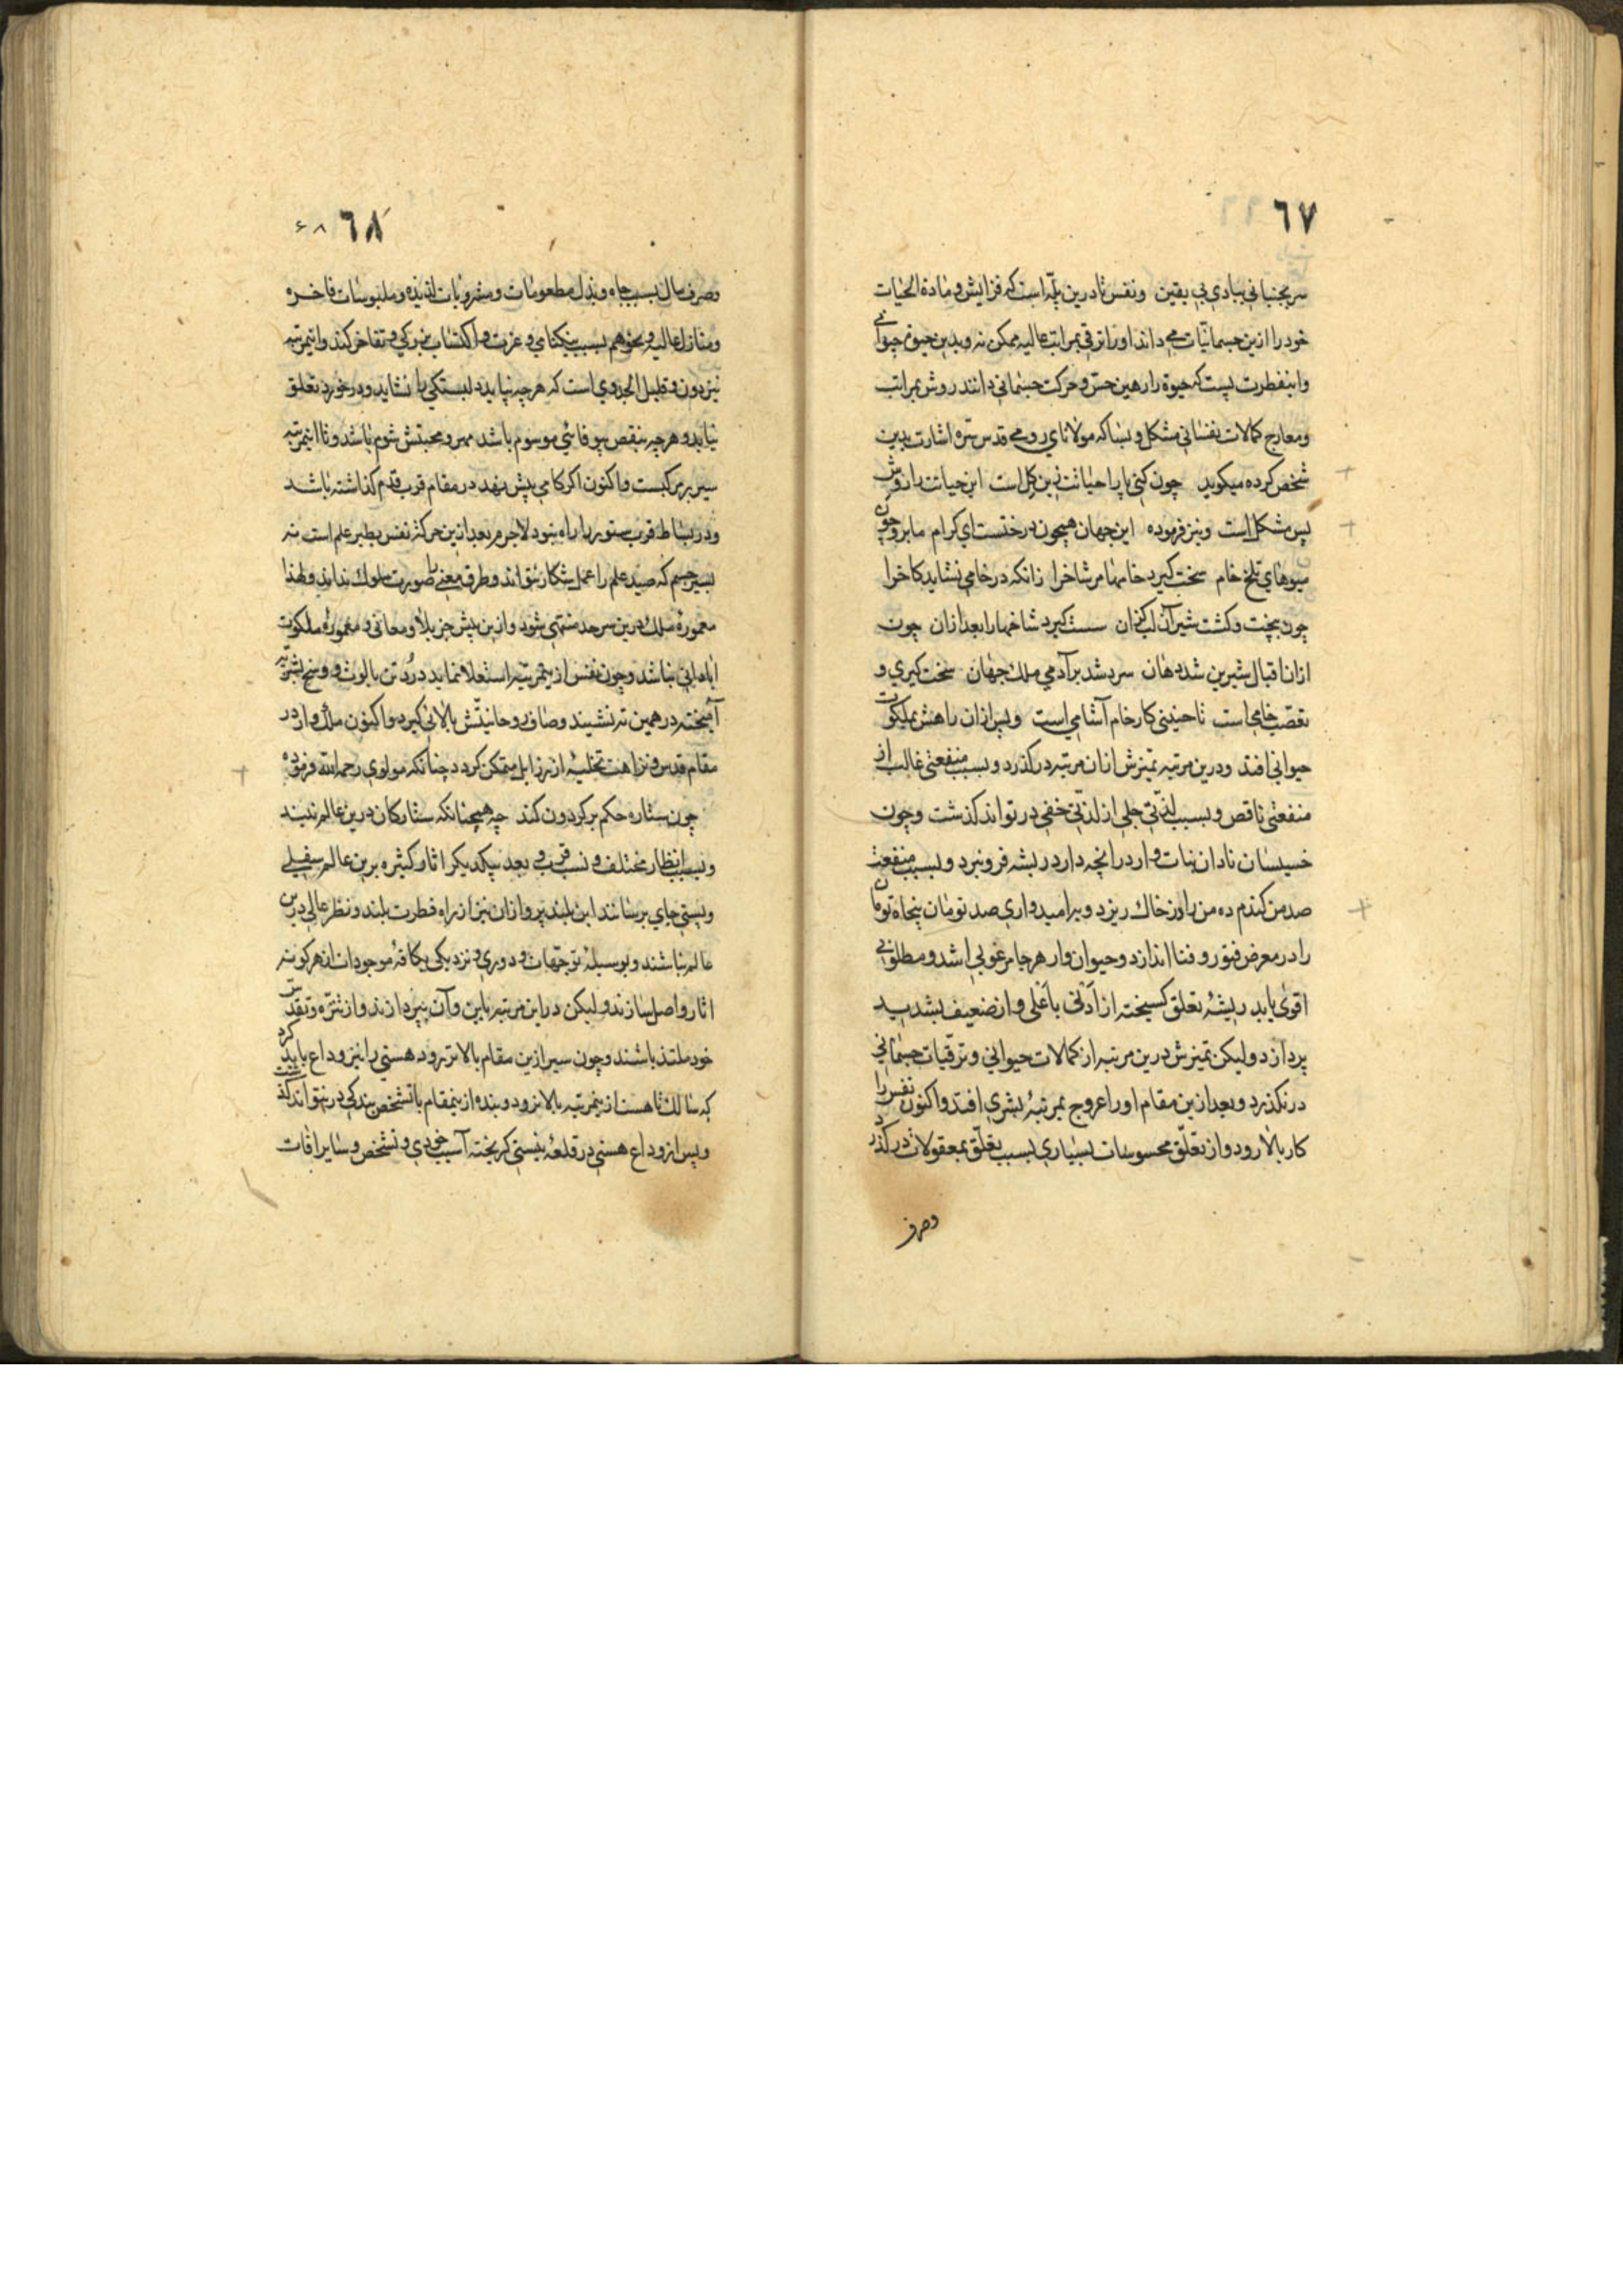 ٦٧
سر بجنبانی ببادی بی یقین ونفس تا درین پله است که فزایش و مادة الحیات
خود را ازین جسمانیات می داند او را ترقی بمراتب عالیه ممکن نه وبدین حیوة حیوانی
واینفطرت پست که حیوة را رهین حس و حرکت جسمانی دانند روش بمراتب
ومعارج کمالات نفسانی مشکل و بسا که مولانای رومی قدس سره اشارت بدین
شخص کرده میکوید چون کنی پا را حیاتت زین کل است این حیاتت را روش
بس مشکل است ونیز فرموده این جهان همچون درختست ای کرام ما برو چون
میوهای تلخ خام سخت کیرد خامها مر شاخرا زانکه در خامی نشاید کاخرا
چون بپخت وکشت شیرین لب کزان سست کیرد شاخها را بعد ازان چون
ازان اقبال شیرین شد دهان سرد شد بر آدمی ملک جهان سخت کیری و
تعصب خامی است تا جنینی کار خام آشامی است وپس ازان راهش بملکوت
حیوانی افتد ودرین مرتبه تمیزش ازان مرتبه درکذرد وبسبب منفعتی غالب از
منفعتی ناقص وبسبب لذتی جلی از لذتی خفی در تواند کذشت وچون
خسیسان نادان نبات وار در آنچه دارد ریشه فرو نبرد وبسبب منفعت
صد من کندم ده من را در خاک ریزد وبر امیدواری صد تومان پنجاه تومان
را در معرض فتور و فنا اندازد وحیوان وار هر جا مرغوبی اشد و مطلوبی
اقوی یابد ریشهٔ تعلق کسیخته از ادنی باعلی واز ضعیف بشدید
پردازد ولیکن تمیزش درین مرتبه از کمالات حیوانی وترقیات جسمانی
درنکذرد وبعد ازین مقام او را عروج بمرتبهٔ بشری افتد واکنون نفس را
کار بالا رود واز تعلق محسوسات بسیاری بسبب تعلق بمعقولات درکذرد
وصرف
٦٨ ٦٨
وصرف مال بسبب جاه وبذل مطعومات ومشروبات لذیذه وملبوسات فاخره
ومنازل عالیه ونحوهم بسبب نیکنامی و عزت و اکتساب بزرکی وتفاخر کند واینمرتبه
نیز دون وقلیل الجدوی است که هر چه نپاید دلبستکی را نشاید ودر خورد تعلق
نیاید وهر چه بنقص بیوفائی موسوم باشد مهر و محبتش شوم باشد وتا اینمرتبه
سیر بر مرکبست واکنون اکر کامی پیش نهد در مقام قرب قدم کذاشته باشد
ودر بساط قرب ستور را راه نبود لاجرم بعد ازین حرکت نفس بطیر علم است نه
بسیر جسم که صید علم را عمل شکار نتواند وطرق معنی را صورت سلوک نداند ولهذا
معمورهٔ ملک درین سرحد منتهی شود وازین پیش جز بلاد معانی و معمورهٔ ملکوت
آبادانی نباشد وچون نفس ازینمرتبه استعلا نماید درد تن با لوث و وسخ بشریه
آمیخته در همین ته نشیند وصاف روحانیتش بالائی کیرد واکنون ملک وار در
مقام قدس ونزاهت تخلیه از رزایل متمکن کردد چنانکه مولوی رحمه الله فرموده
چون ستاره حکم بر کردون کند چه همچنانکه ستارکان درین عالم نیند
وبسبب انظار مختلف و نسب قرب و بعد بیکدیکر اثار کثیره برین عالم سفلی
وپستی جای برسانند این بلند پروازان نیز از راه فطرت بلند ونظر عالی درین
عالم نباشند وبوسیلهٔ توجهات ودوری ونزدیکی بکافهٔ موجودات از هر کونه
اثار واصل سازند ولیکن در این مرتبه باین وآن نپردازند واز تنزه وتقدس
خود ملتذ باشند وچون سیر ازین مقام بالاتر رود هستی را نیز وداع باید کرد
که سالک تا هست ازینمرتبه بالا نرود وبنده ازینمقام با تشخص بندکی در نتواند کذشت
وپس از وداع هستی در قلعهٔ نیستی کریخته آسیب خودی وتشخص وسایر آفات